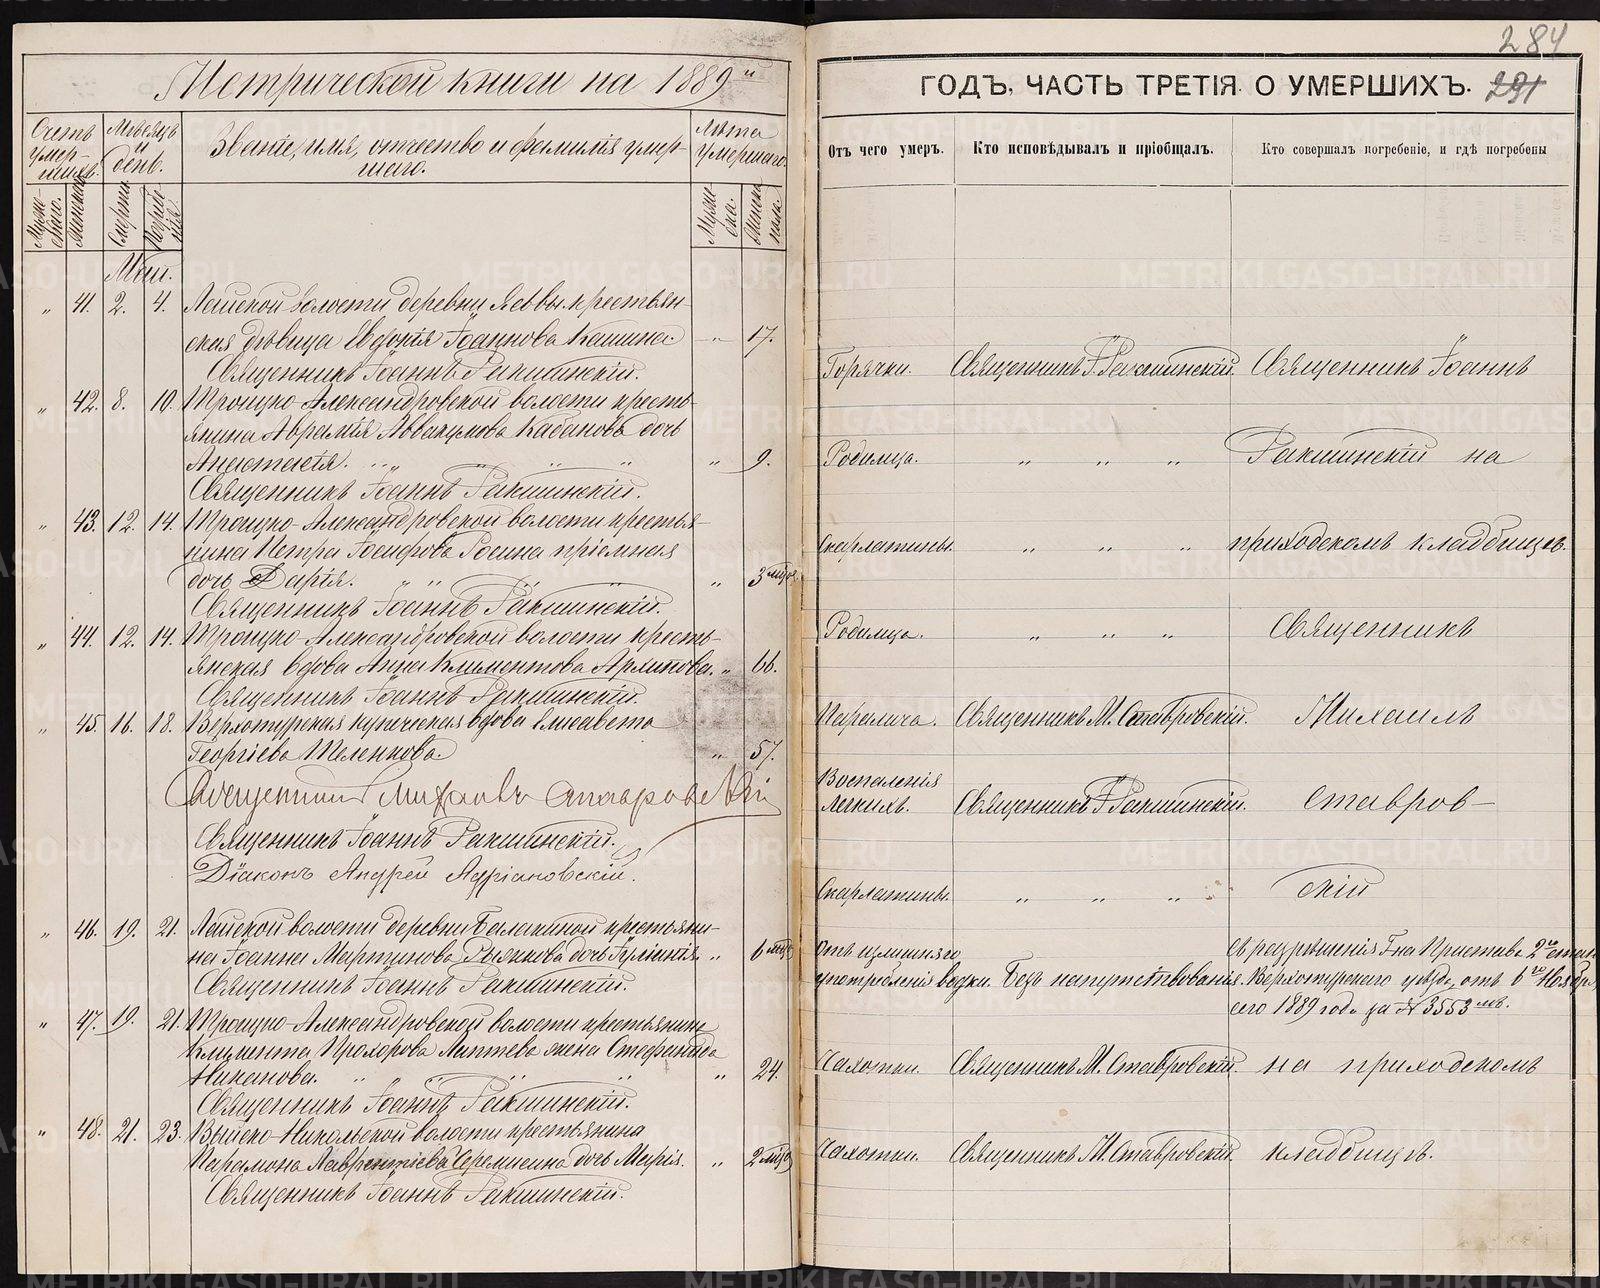 Метрической книги на 1889й
Счетъ умер-шихъ.
Мѣсяцъ и день.
Званіе, имя, отчество и фамилія умер-
шаго.
Лѣта умершаго.
Мужескаго.
Женскаго.
Смерти.
Погребенія.
Мужеска.
Женска пола.
Май.
„ 41. 2. 4. Лайской волости деревни крестьян-
ская дѣвица Евдокія Іоаннова Кашина „ 17.
Священникъ Іоаннъ Ракшинскій.
„ 42. 8. 10. Троицко-Александровской волости кресть-
янина Аврамія Аввакумова Кабанова дочь
Анастасія. „ „ „ „ „ 9.
Священникъ Іоаннъ Ракшинскій.
„ 43. 12. 14. Троицко-Александровской волости крестья-
нина Петра Іосифова Росина пріемная
дочь Дарія. „ „ „ „ 3 мѣся.
Священникъ Іоаннъ Ракшинскій.
„ 44. 12. 14. Троицко-Александровской волости кресть-
янская вдова Анна Климентова „ 66.
Священникъ Іоаннъ Ракшинскій.
„ 45. 16. 18. Верхотурская купеческая вдова Елисавета
Георгіева Шеленкова. „ 57.
Священник Михаилъ Ставровскій
Священникъ Іоаннъ Ракшинскій.
Діаконъ Андрей Адріановскій.
„ 46. 19. 21. Лайской волости деревни Балакиной крестьяни-
на Іоанна Мартинова Рычкова дочь Іуліанія. „ 6 мѣся
Священникъ Іоаннъ Ракшинскій.
„ 47. 19. 21. Троицко-Александровской волости крестьянина
Климента Прохорова Лаптева жена Стефанида
Никанова. „ „ „ „ „ 24.
Священникъ Іоаннъ Ракшинскій.
„ 48. 21. 23. Выйско-Никольской волости крестьянина
Парамона Лаврентіева дочь Марія. „ 2 мѣся
Священникъ Іоаннъ Ракшинскій.
284
ГОДЪ, ЧАСТЬ ТРЕТІЯ О УМЕРШИХЪ. 291
Отъ чего умеръ.
Кто исповѣдывалъ и пріобщалъ.
Кто совершалъ погребеніе, и гдѣ погребены
Горячки. Священникъ І. Ракшинскій. Священникъ Іоаннъ
Родимца. „ „ „ Ракшинскій на
Скарлатины. „ „ „ приходскомъ кладбищѣ.
Родимца. „ „ „ Священникъ
Паралича. Священникъ М. Ставровскій. Михаилъ
Воспаленія
легкихъ. Священникъ І. Ракшинскій. Ставров-
Скарлатины. „ „ „ скій
Отъ излишняго съ разрѣшенія Г-на Пристава 2го стана
употребленія водки. Безъ напутствованія. Верхотурскаго уѣзда, отъ 6го Ноября
сего 1889 года за № 3553мъ.
Чахотки. Священникъ М. Ставровскій. на приходскомъ
Чахотки. Священникъ М. Ставровскій. кладбищѣ.
METRIKI.GASO-URAL.RU